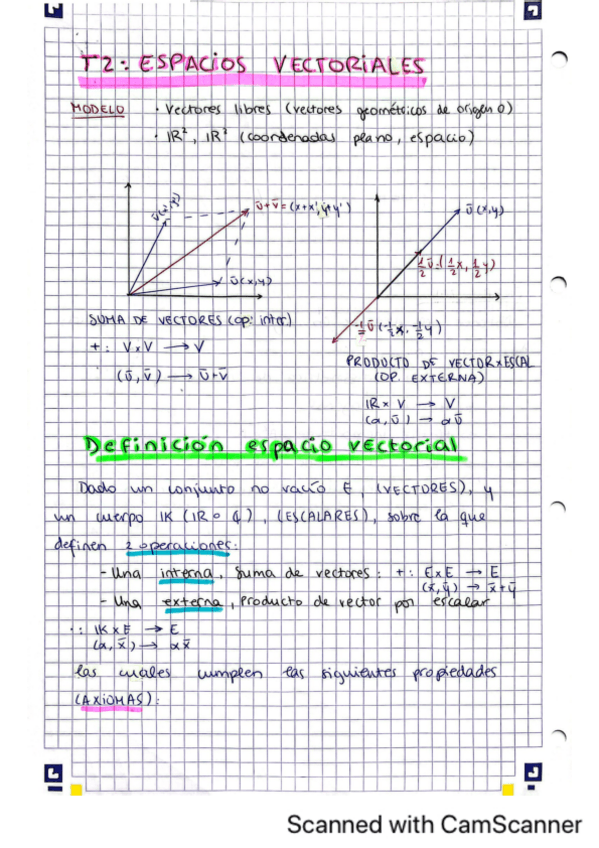 T2: ESPACIOS VECTORIALES
MODELO · Vectores libres (vectores geométricos de origen 0)
· IR², IR³ (coordenadas plano, espacio)
v̄(x',y')
ū+v̄ = (x+x', y+y')
ū(x,y)
ū(x,y)
½ū(½x, ½y)
-½ū(-½x, -½y)
SUMA DE VECTORES (op: inter)
+ : V×V → V
(ū, v̄) → ū+v̄
PRODUCTO DE VECTOR×ESCAL
(OP. EXTERNA)
IR × V → V
(α, ū) → αū
Definición espacio vectorial
Dado un conjunto no vacío E, (VECTORES), y
un cuerpo IK (IR o ₵), (ESCALARES), sobre la que
definen 2 operaciones:
- Una interna, Suma de vectores: + : E×E → E
(x̄, ȳ) → x̄+ȳ
- Una externa, Producto de vector por escalar
· : IK×E → E
(α, x̄) → αx̄
las cuales cumplen las siguientes propiedades
(AXIOMAS):
Scanned with CamScanner